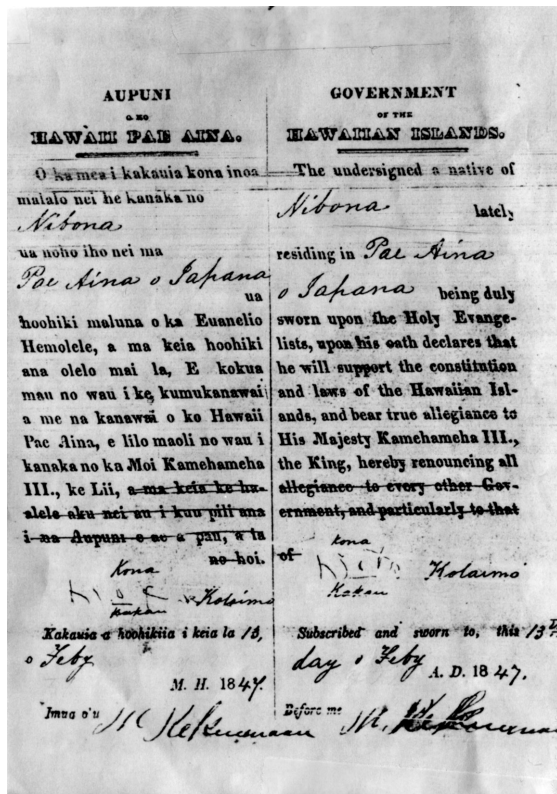 AUPUNI
O KO
HAWAII PAE AINA.
O ka mea i kakauia kona inoa
malalo nei he kanaka no
Nibona
ua noho iho nei ma
Pae Aina o Iapana
ua
hoohiki maluna o ka Euanelio
Hemolele, a ma keia hoohiki
ana olelo mai la, E kokua
mau no wau i ke kumukanawai
a me na kanawai o ko Hawaii
Pae Aina, e lilo maoli no wau i
kanaka no ka Moi Kamehameha
III., ke Lii, a ma keia ke ha-
alele aku nei au i kuu pili ana
i na Aupuni e ae a pau, a ta
no hoi.
Kona
Kolaimo
Kakau
Kakauia a hoohikiia i keia la 13,
o Feby
M. H. 1847.
Imua o'u M Kekuanaoa
GOVERNMENT
OF THE
HAWAIIAN ISLANDS.
The undersigned a native of
Nibona lately
residing in Pae Aina
o Iapana being duly
sworn upon the Holy Evange-
lists, upon his oath declares that
he will support the constitution
and laws of the Hawaiian Isl-
ands, and bear true allegiance to
His Majesty Kamehameha III.,
the King, hereby renouncing all
allegiance to every other Gov-
ernment, and particularly to that
of
kona
Kolaimo
Kakau
Subscribed and sworn to, this 13th
day o Feby A. D. 1847.
Before me M.